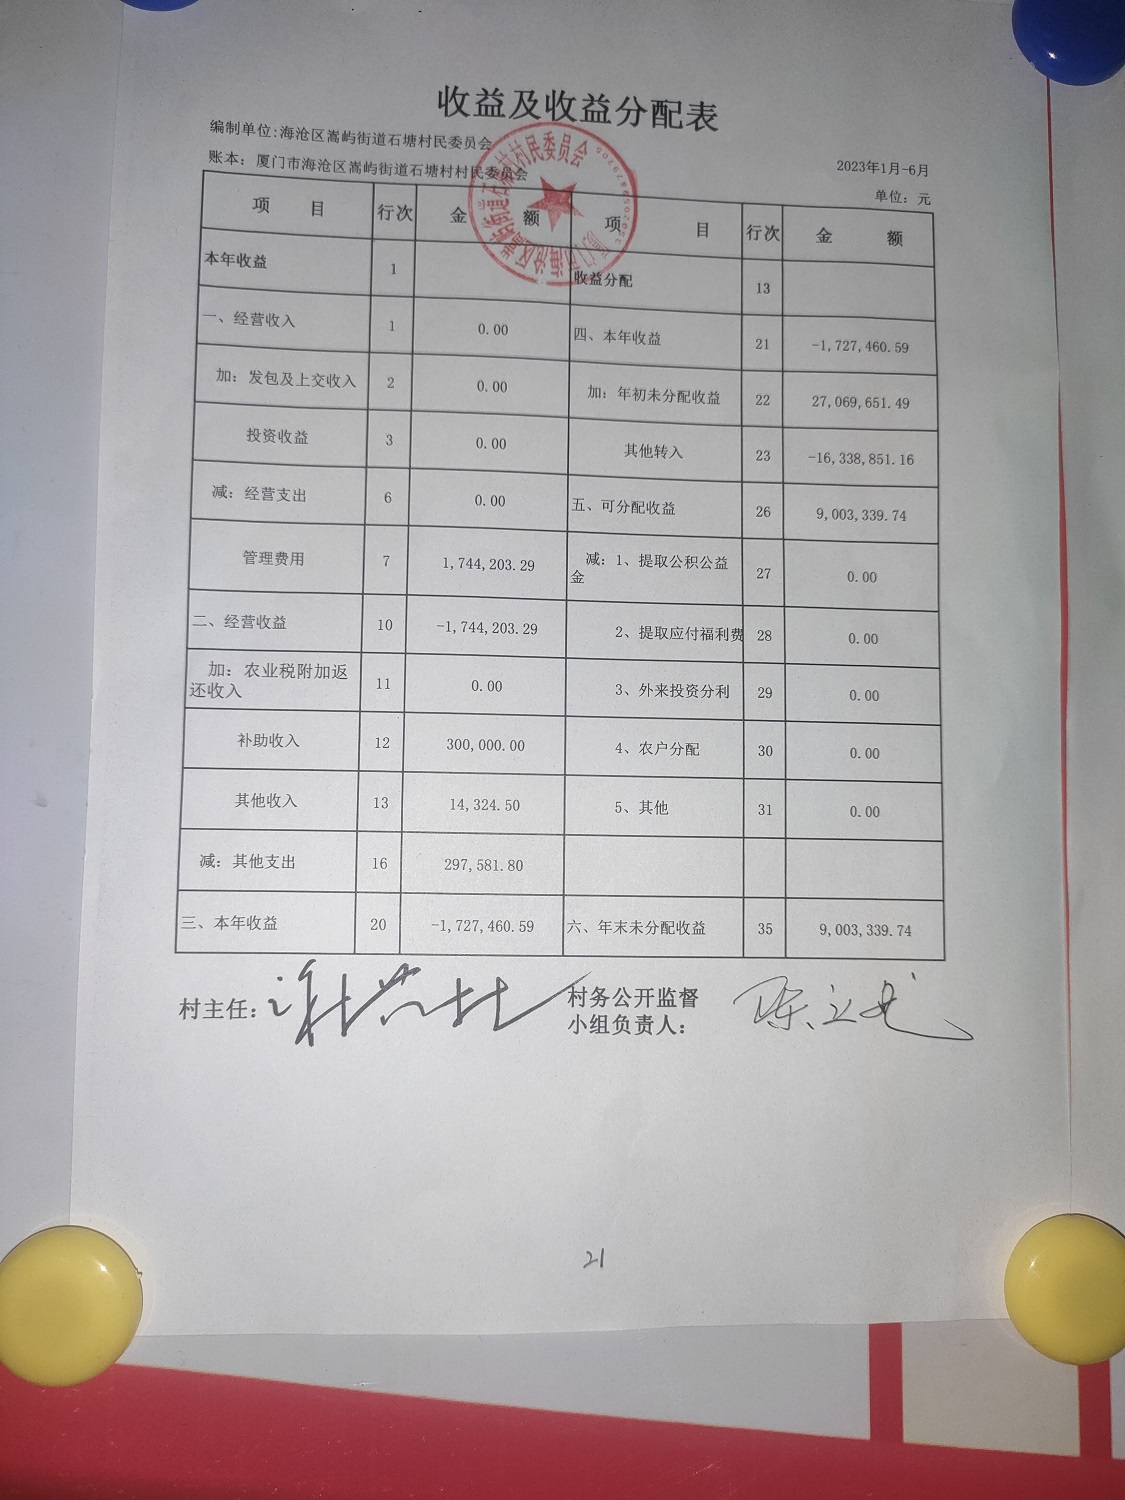 收益及收益分配表
编制单位:海沧区嵩屿街道石塘村民委员会
账本：厦门市海沧区嵩屿街道石塘村村民委员会
2023年1月-6月
单位：元
项 目 行次 金 额 项 目 行次 金 额
本年收益 1 收益分配 13
一、经营收入 1 0.00 四、本年收益 21 -1,727,460.59
加：发包及上交收入 2 0.00 加：年初未分配收益 22 27,069,651.49
投资收益 3 0.00 其他转入 23 -16,338,851.16
减：经营支出 6 0.00 五、可分配收益 26 9,003,339.74
管理费用 7 1,744,203.29 减：1、提取公积公益金 27 0.00
二、经营收益 10 -1,744,203.29 2、提取应付福利费 28 0.00
加：农业税附加返还收入 11 0.00 3、外来投资分利 29 0.00
补助收入 12 300,000.00 4、农户分配 30 0.00
其他收入 13 14,324.50 5、其他 31 0.00
减：其他支出 16 297,581.80
三、本年收益 20 -1,727,460.59 六、年末未分配收益 35 9,003,339.74
村主任：
村务公开监督
小组负责人：
21